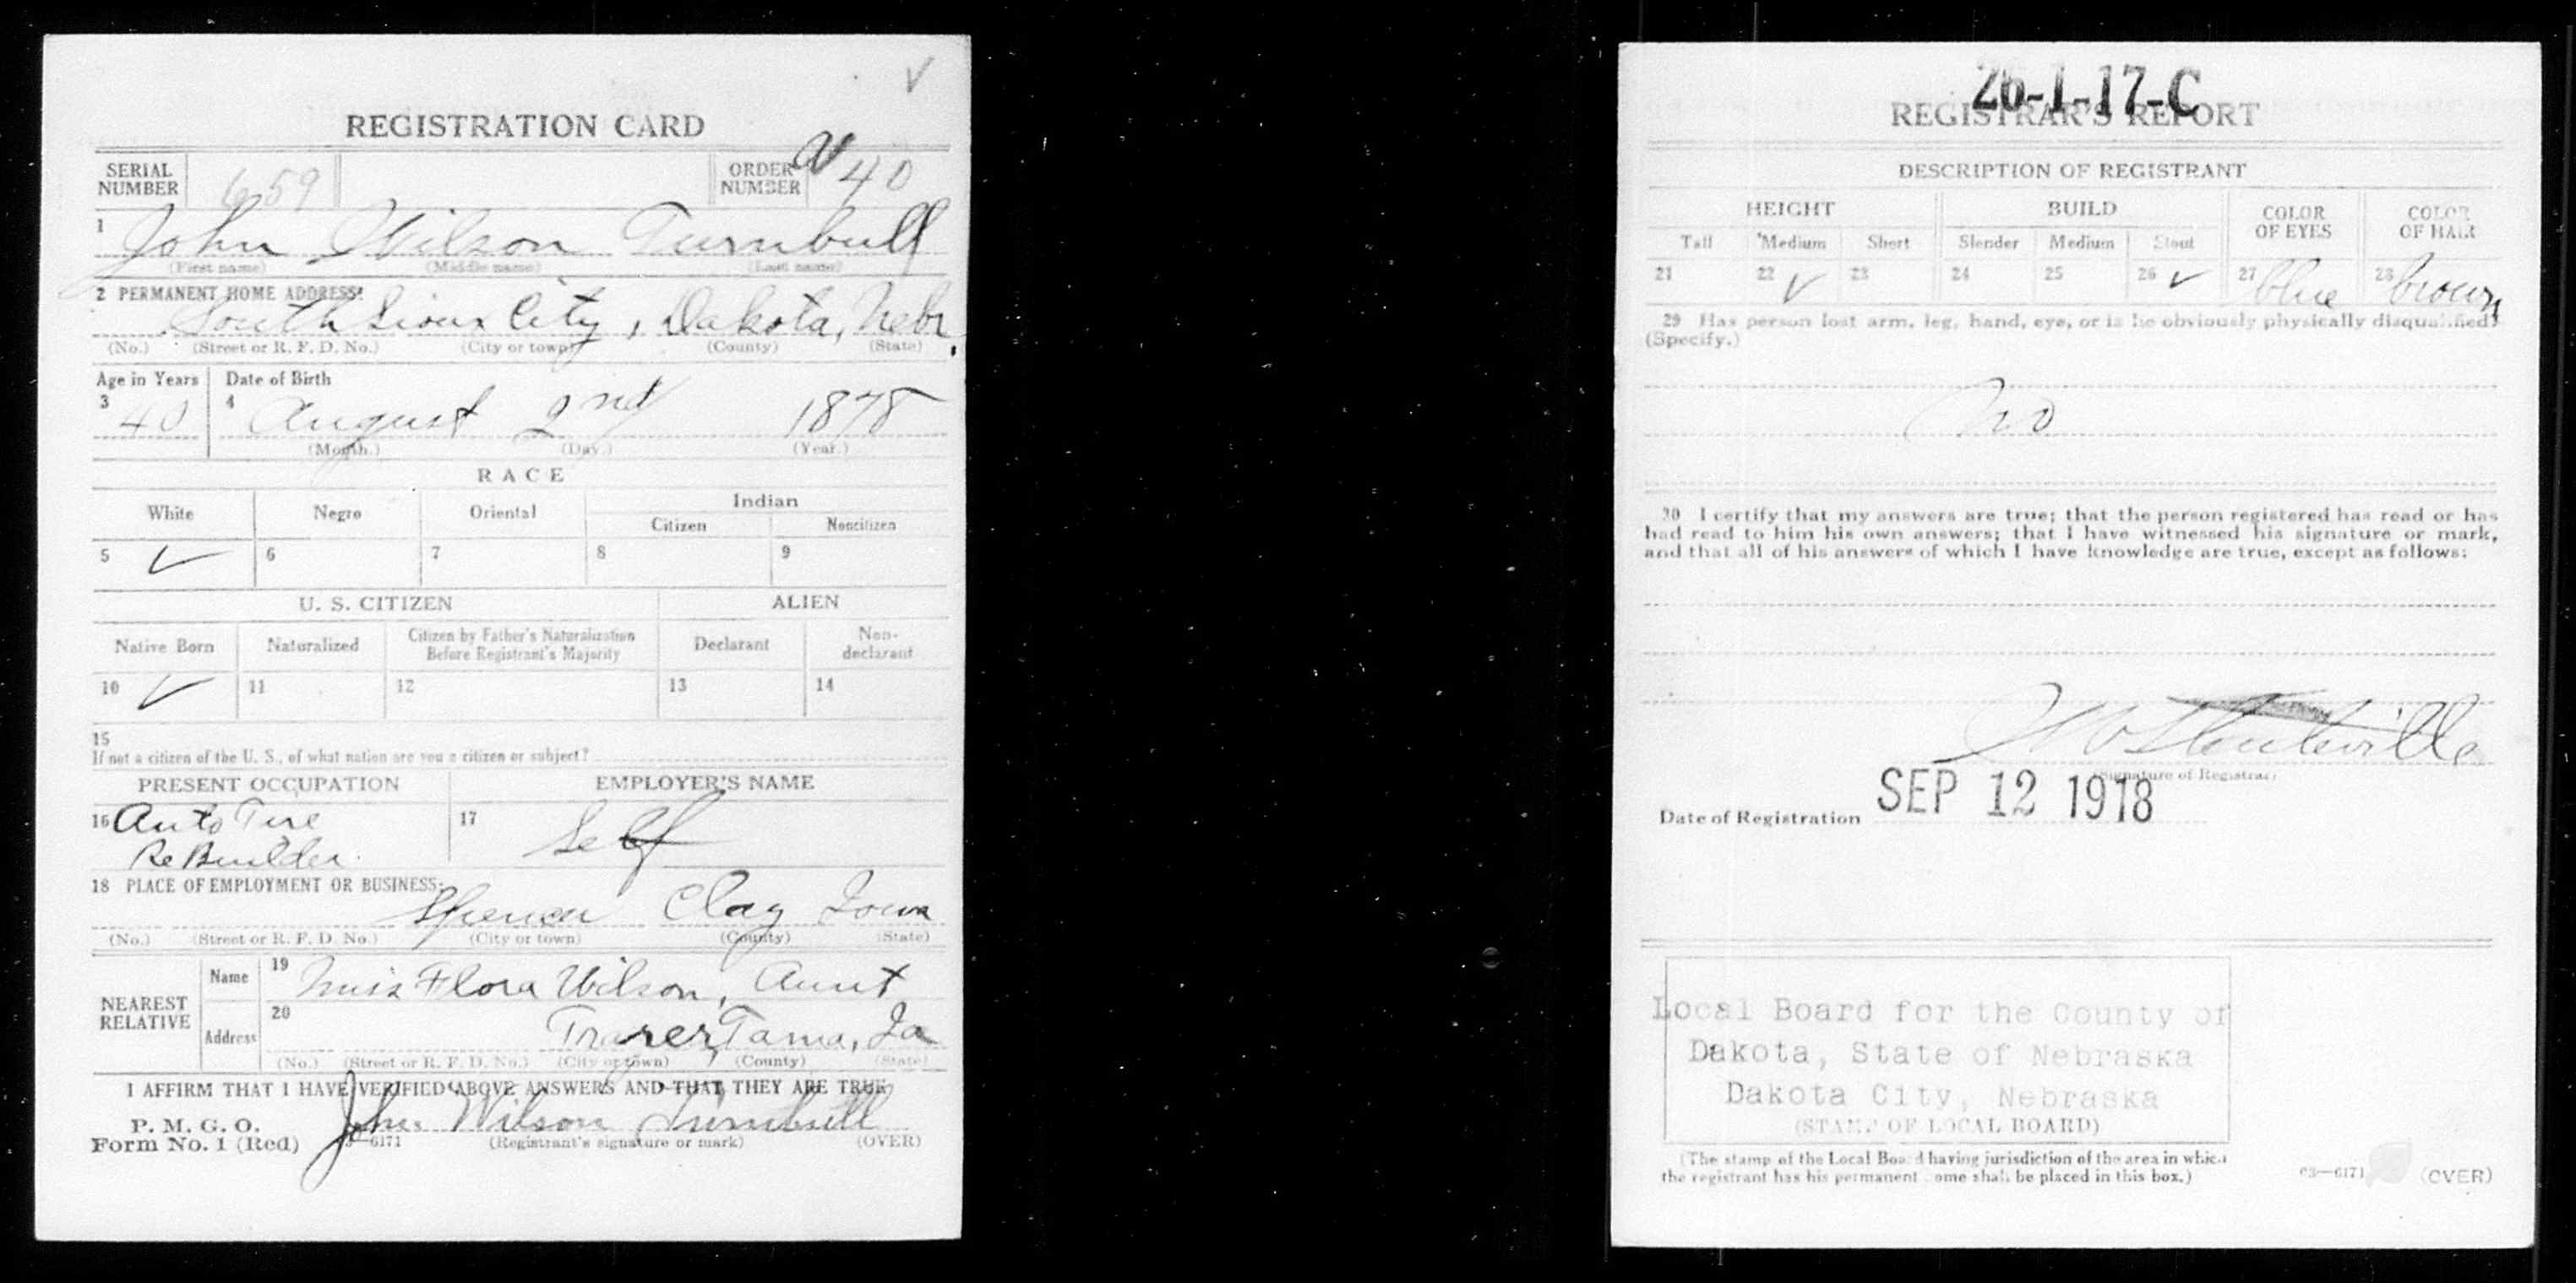 REGISTRATION CARD
SERIAL NUMBER 659 ORDER NUMBER A 40
1 John Wilson Turnbull
(First name) (Middle name) (Last name)
2 PERMANENT HOME ADDRESS:
South Sioux City, Dakota, Nebr.
(No.) (Street or R. F. D. No.) (City or town) (County) (State)
Age in Years Date of Birth
3 40 4 August 2nd 1878
(Month.) (Day.) (Year.)
RACE
White Negro Oriental Indian
Citizen Noncitizen
5 ✓ 6 7 8 9
U. S. CITIZEN ALIEN
Native Born Naturalized Citizen by Father's Naturalization Before Registrant's Majority Declarant Non-declarant
10 ✓ 11 12 13 14
15
If not a citizen of the U. S., of what nation are you a citizen or subject?
PRESENT OCCUPATION EMPLOYER'S NAME
16 Auto Tire 17 Self
ReBuilder
18 PLACE OF EMPLOYMENT OR BUSINESS:
Spencer Clay Iowa
(No.) (Street or R. F. D. No.) (City or town) (County) (State)
NEAREST RELATIVE Name 19 Miss Flora Wilson, Aunt
Address 20 Traer, Tama, Ia
(No.) (Street or R. F. D. No.) (City or town) (County) (State)
I AFFIRM THAT I HAVE VERIFIED ABOVE ANSWERS AND THAT THEY ARE TRUE
John Wilson Turnbull
P. M. G. O.
Form No. 1 (Red) 3—6171 (Registrant's signature or mark) (OVER)
26-1-17-C
REGISTRAR'S REPORT
DESCRIPTION OF REGISTRANT
HEIGHT BUILD COLOR OF EYES COLOR OF HAIR
Tall Medium Short Slender Medium Stout
21 22 ✓ 23 24 25 26 ✓ 27 blue 28 brown
29 Has person lost arm, leg, hand, eye, or is he obviously physically disqualified?
(Specify.)
No
30 I certify that my answers are true; that the person registered has read or has
had read to him his own answers; that I have witnessed his signature or mark,
and that all of his answers of which I have knowledge are true, except as follows:
(Signature of Registrar)
Date of Registration SEP 12 1918
Local Board for the County of
Dakota, State of Nebraska
Dakota City, Nebraska
(STAMP OF LOCAL BOARD)
(The stamp of the Local Board having jurisdiction of the area in which
the registrant has his permanent home shall be placed in this box.)
03—6171 (OVER)